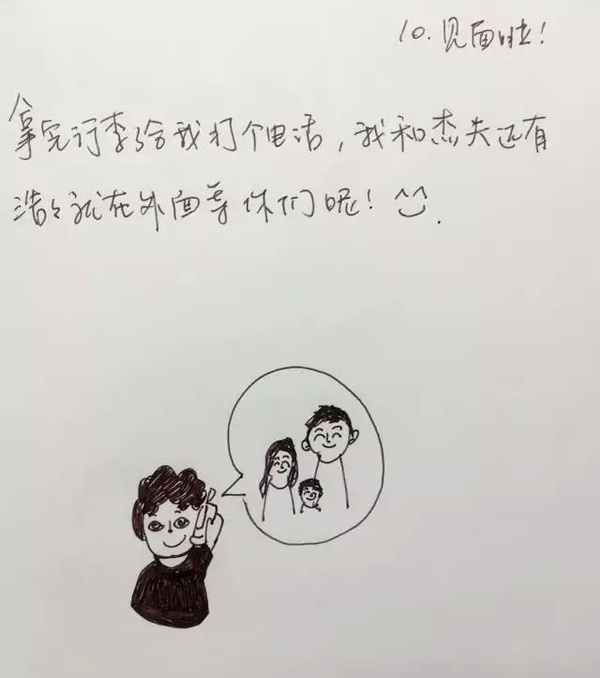 10.见面啦!
拿完行李给我打个电话,我和杰夫还有
浩々就在外面等你们呢!